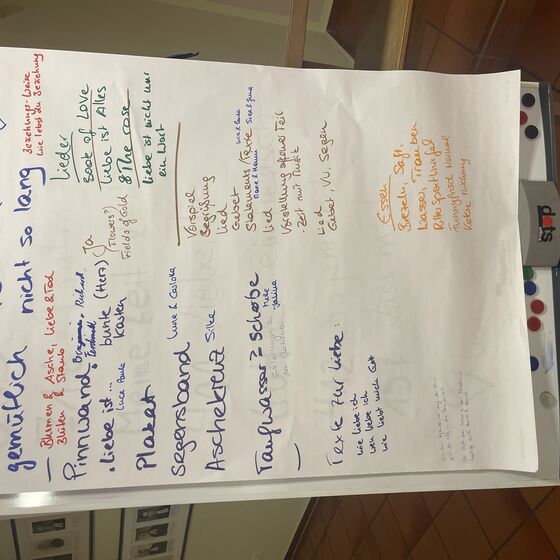 gemütlich nicht so lang
Beziehungs-Weise
wie lebst du Beziehung
Blumen & Asche, Liebe & Tod
Blüten & Staub
Pinnwand
Richard
Ferdinand
• Liebe ist... bunte (Herz)
Luca Paula
Karten
Plakat
Segensband
Luna & Carlotta
Aschekreuz
Silke
Taufwasser & Scherbe
Julius
Texte für Liebe:
wie liebe ich
wen liebe ich
wie liebt mich Gott
Lieder
Book of Love
Liebe ist Alles
& The rose
Liebe ist nicht nur
ein Wort
Ja
(Flowers?)
Fields of Gold
Vorspiel
Begrüßung
Lied
Gebet
Statements / Texte
Lied
Vorstellung offener Teil
Zeit mit Musik
Lied
Gebet, VU, Segen
Essen
Brezeln, Saft,
Wasser, Trauben
Ritter Sport Würfel
Kekse
dots